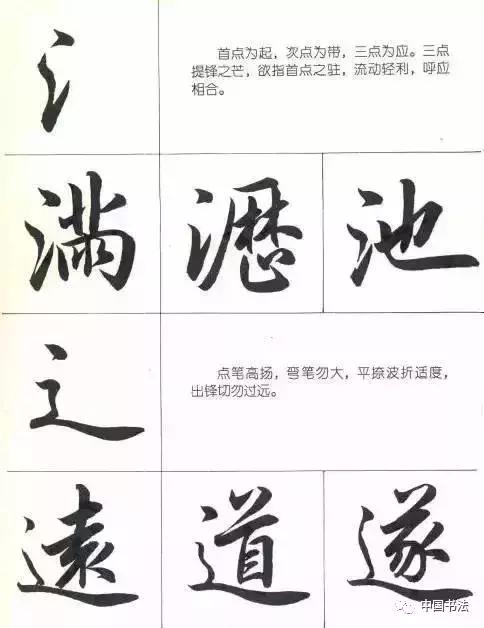 氵
首点为起，次点为带，三点为应。三点
提锋之芒，欲指首点之驻，流动轻利，呼应
相合。
滿 瀝 池
辶
点笔高扬，弯笔勿大，平捺波折适度，
出锋切勿过远。
遠 道 遂
中国书法